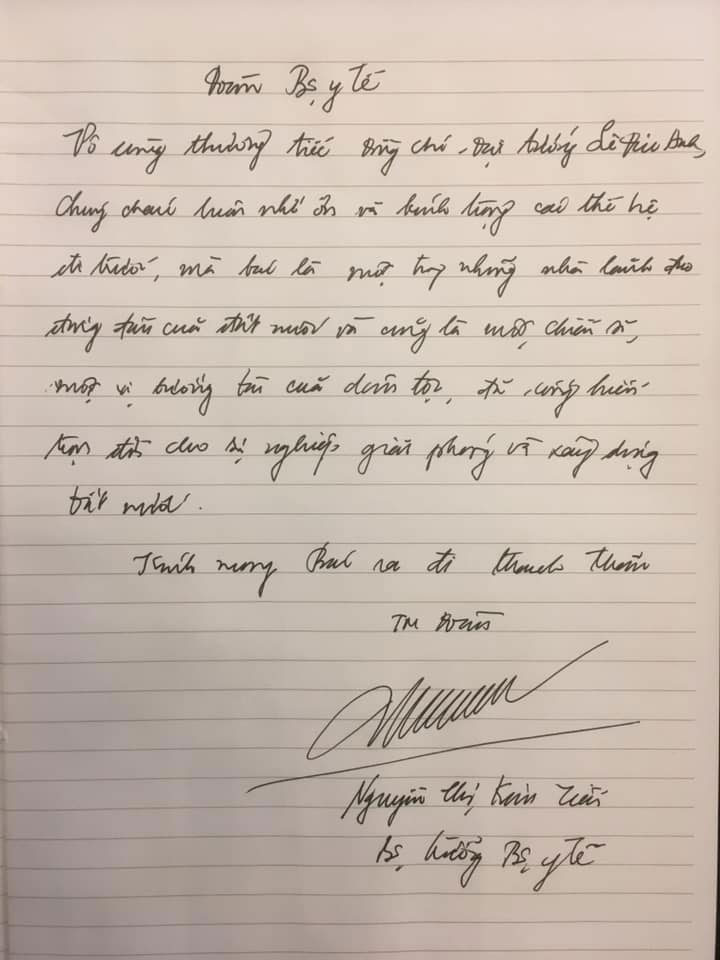 Đoàn Bộ y tế
Vô cùng thương tiếc đồng chí Đại tướng Lê Đức Anh,
Chúng cháu luôn nhớ ơn và kính trọng các thế hệ
đi trước, mà bác là một trong những nhà lãnh đạo
đứng đầu của đất nước và cũng là một chiến sĩ,
một vị tướng tài của dân tộc, đã cống hiến
trọn đời cho sự nghiệp giải phóng và xây dựng
đất nước.
Kính mong Bác ra đi thanh thản
TM Đoàn
Nguyễn Thị Kim Tiến
Bộ trưởng Bộ y tế